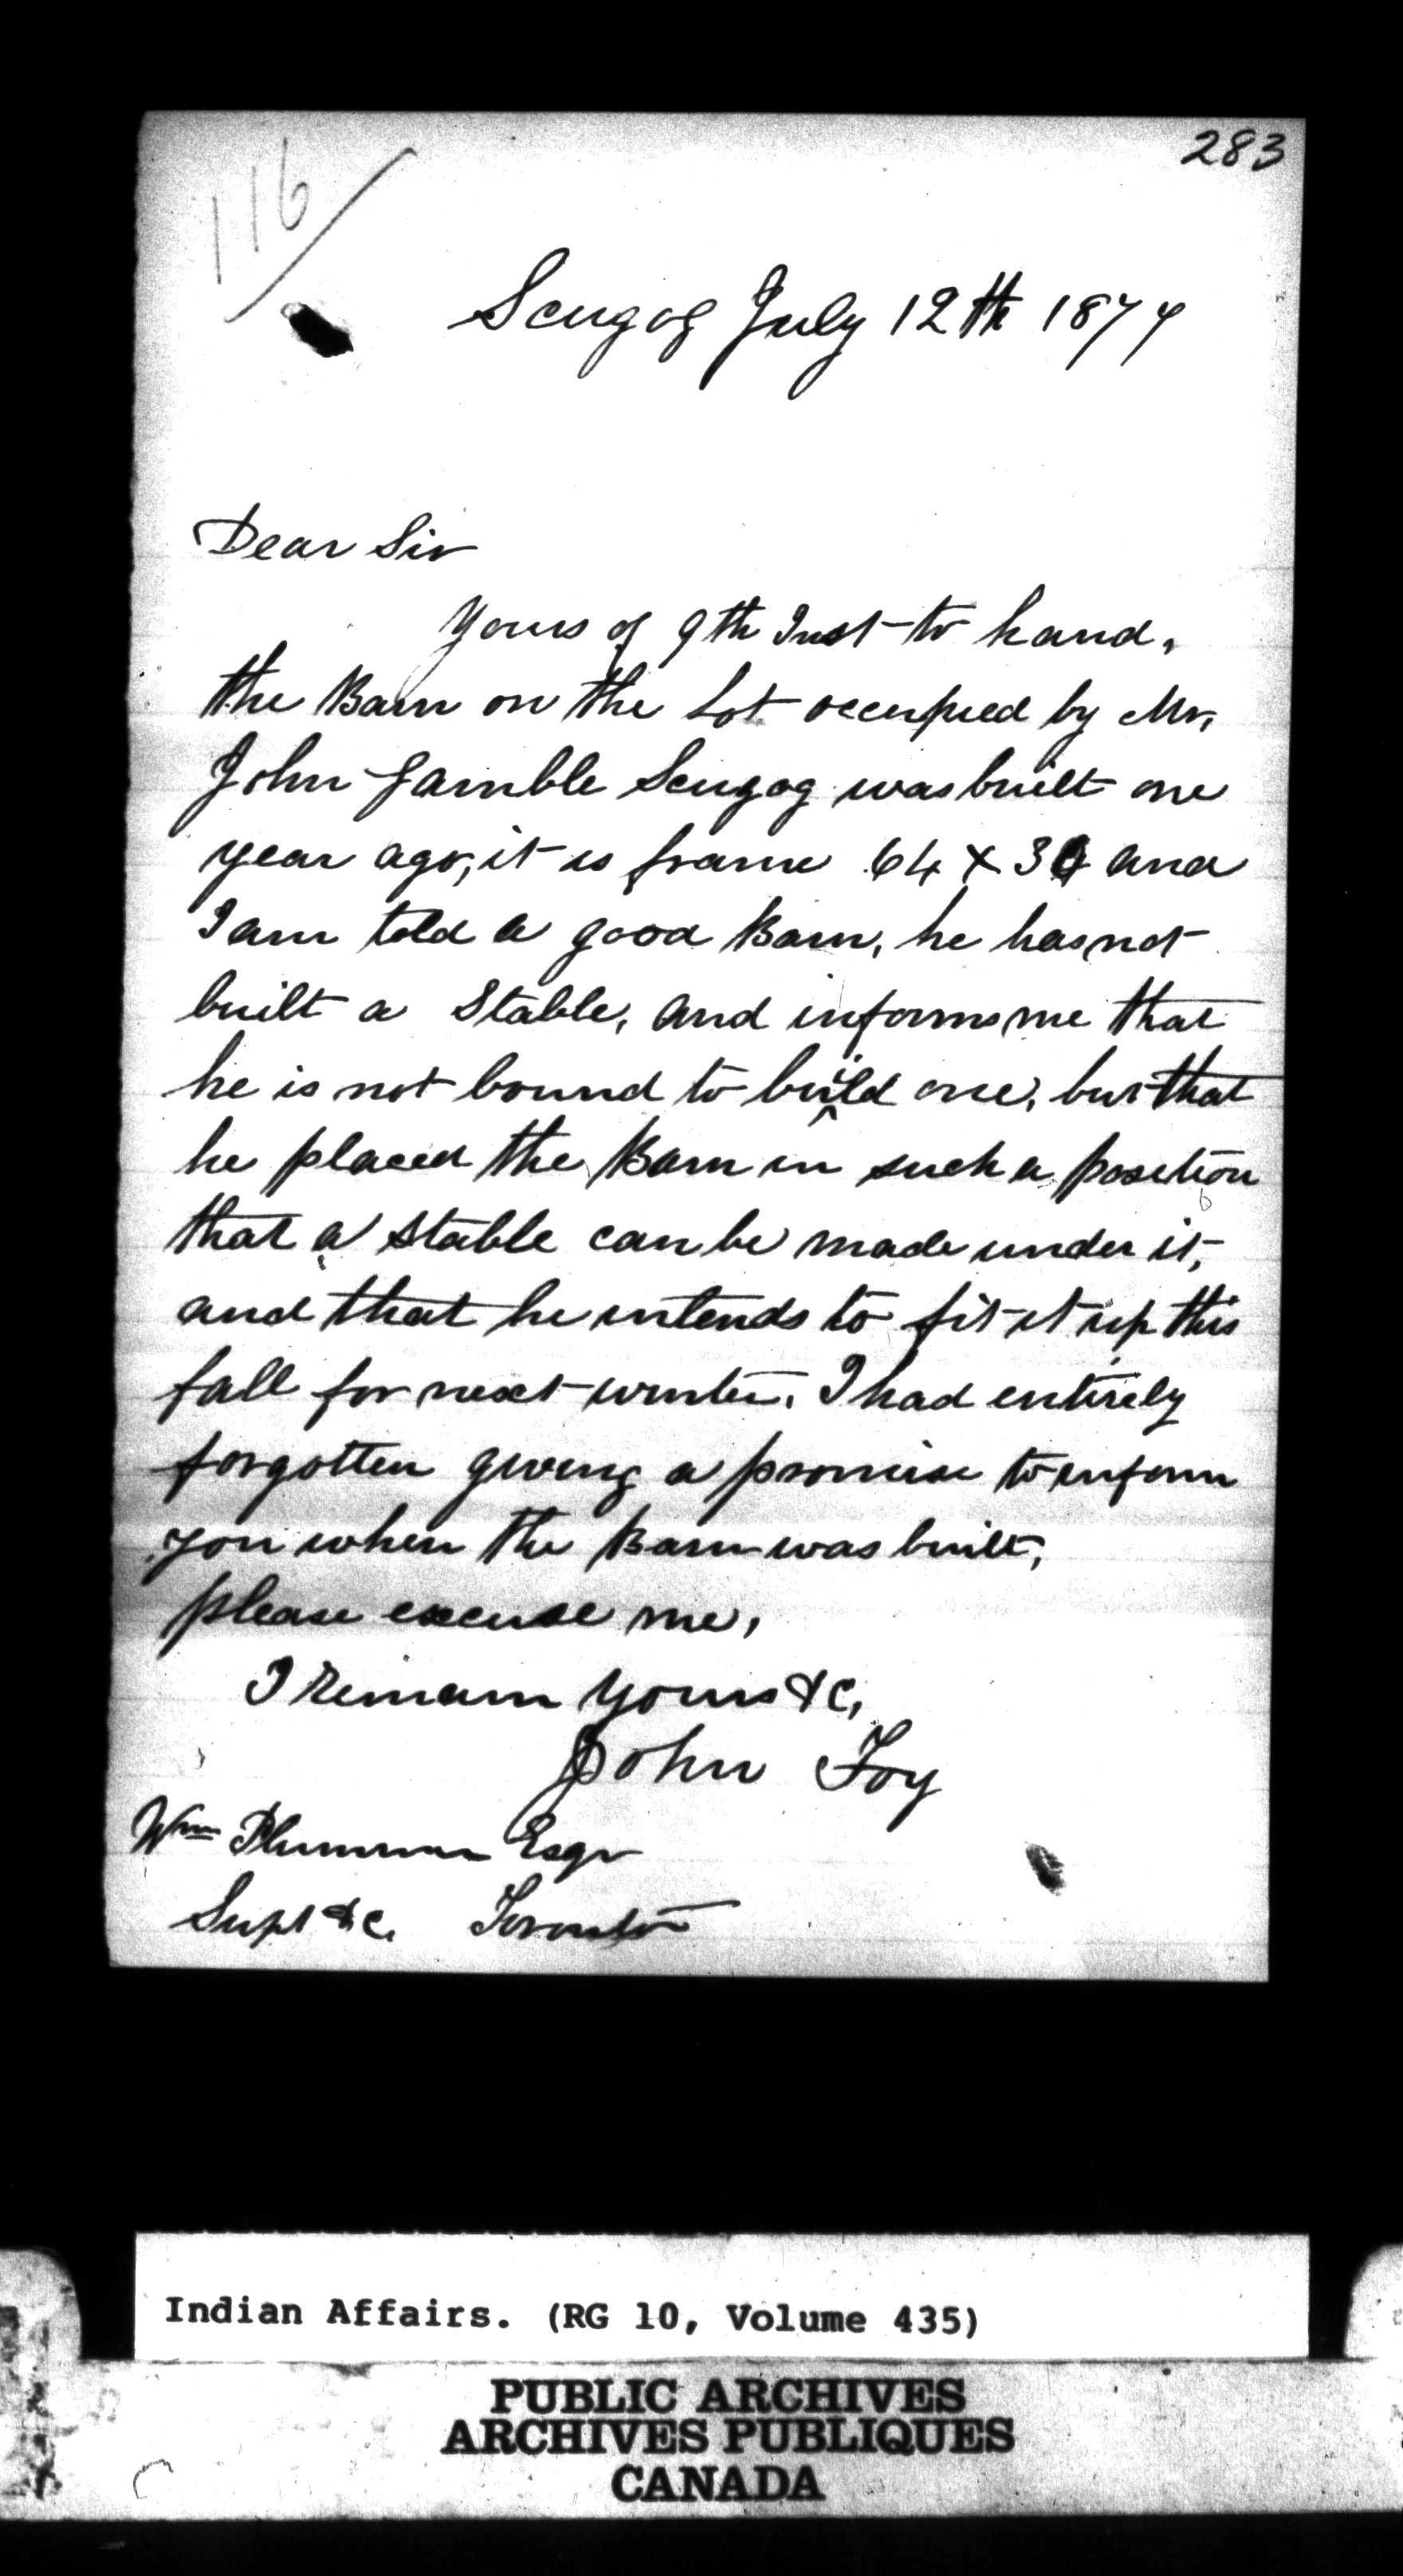 283
116
Scugog July 12th 1877
Dear Sir
Yours of 9th Inst to hand,
the Barn on the Lot occupied by Mr,
John Gamble Scugog was built one
year ago, it is frame 64 x 30 and
I am told a good Barn, he has not
built a Stable, and informs me that
he is not bound to build one, but that
he placed the Barn in such a position
that a stable can be made under it,
and that he intends to fit it up this
fall for next winter. I had entirely
forgotten giving a promise to inform
you when the Barn was built,
please excuse me,
I remain yours &c,
John Foy
Wm Plummer Esqr
Supt &c. Toronto
Indian Affairs. (RG 10, Volume 435)
PUBLIC ARCHIVES
ARCHIVES PUBLIQUES
CANADA